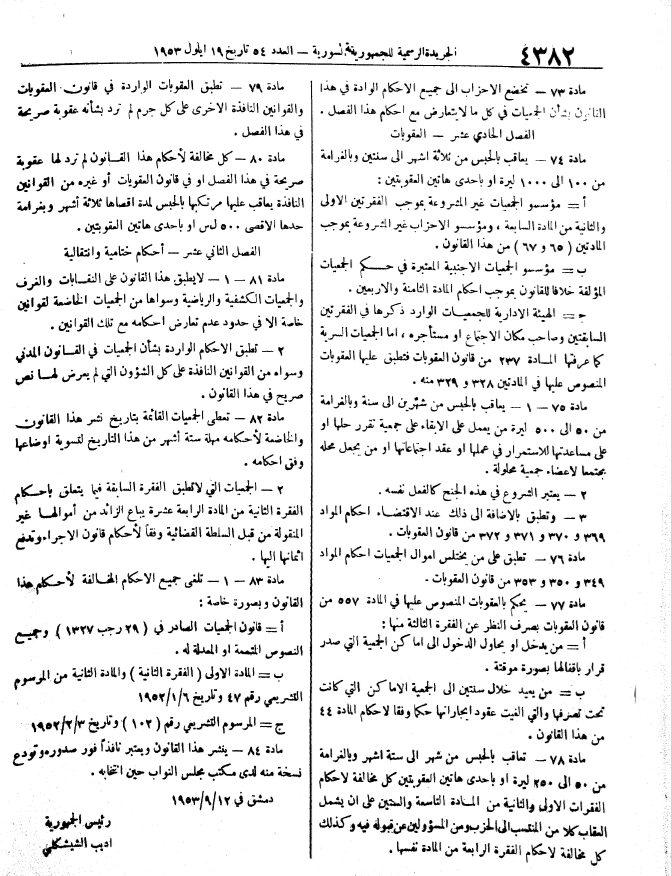 ٤٣٨٢
الجريدة الرسمية للجمهورية السورية – العدد ٥٤ تاريخ ١٩ ايلول ١٩٥٣
مادة ٧٣ – تخضع الاحزاب الى جميع الاحكام الوادة في هذا
القانون بشأن الجمعيات في كل ما لايتعارض مع احكام هذا الفصل .
الفصل الحادي عشر – العقوبات
مادة ٧٤ – يعاقب بالحبس من ثلاثة اشهر الى سنتين وبالغرامة
من ١٠٠ الى ١٠٠٠ ليرة او باحدى هاتين العقوبتين :
أ – مؤسسو الجمعيات غير المشروعة بموجب الفقرتين الاولى
والثانية من المادة السابعة ، ومؤسسو الاحزاب غير المشروعة بموجب
المادتين ( ٦٥ و ٦٧ ) من هذا القانون .
ب – مؤسسو الجمعيات الاجنبية المعتبرة في حكم الجمعيات
المؤلفة خلافا للقانون بموجب احكام المادة الثامنة والاربعين .
ج – الهيئة الادارية للجمعيات الوارد ذكرها في الفقرتين
السابقتين وصاحب مكان الاجتماع او مستأجره ، اما الجمعيات السرية
كما عرفتها المادة ٢٣٧ من قانون العقوبات فتطبق عليها العقوبات
المنصوص عليها في المادتين ٣٢٨ و ٣٢٩ منه .
مادة ٧٥ – ١ – يعاقب بالحبس من شهرين الى سنة وبالغرامة
من ٥٠ الى ٥٠٠ ليرة من يعمل على الابقاء على جمعية تقرر حلها او
على مساعدتها للاستمرار في عملها او عقد اجتماعاتها او من يجعل محله
مجتمعا لاعضاء جمعية محلولة .
٢ – يعتبر الشروع في هذه الجنح كالفعل نفسه .
٣ – وتطبق بالاضافة الى ذلك عند الاقتضاء احكام المواد
٣٦٩ و ٣٧٠ و ٣٧١ و ٣٧٢ من قانون العقوبات .
مادة ٧٦ – تطبق على من يختلس اموال الجمعيات احكام المواد
٣٤٩ و ٣٥٠ و ٣٥٣ من قانون العقوبات .
مادة ٧٧ – يحكم بالعقوبات المنصوص عليها في المادة ٥٥٧ من
قانون العقوبات بصرف النظر عن الفقرة الثالثة منها :
أ – من يدخل او يحاول الدخول الى اماكن الجمعية التي صدر
قرار باقفالها بصورة موقتة .
ب – من يعيد خلال سنتين الى الجمعية الاماكن التي كانت
تحت تصرفها والتي الغيت عقود ايجاراتها حكما وفقا لاحكام المادة ٤٤
من هذا القانون .
مادة ٧٨ – تعاقب بالحبس من شهر الى ستة اشهر وبالغرامة
من ٥٠ الى ٢٥٠ ليرة او باحدى هاتين العقوبتين كل مخالفة لاحكام
الفقرات الاولى والثانية من المادة التاسعة والستين على ان يشمل
العقاب كلا من المنتسب الى الحزب ومن المسؤولين عن قبوله فيه وكذلك
كل مخالفة لاحكام الفقرة الرابعة من المادة نفسها .
مادة ٧٩ – تطبق العقوبات الواردة في قانون العقوبات
والقوانين النافذة الاخرى على كل جرم لم ترد بشأنه عقوبة صريحة
في هذا الفصل .
مادة ٨٠ – كل مخالفة لأحكام هذا القانون لم ترد لها عقوبة
صريحة في هذا الفصل او في قانون العقوبات أو غيره من القوانين
النافذة يعاقب عليها مرتكبها بالحبس لمدة اقصاها ثلاثة أشهر وبغرامة
حدها الاقصى ٥٠٠ ل س او باحدى هاتين العقوبتين .
الفصل الثاني عشر – أحكام ختامية وانتقالية
مادة ٨١ – ١ – لايطبق هذا القانون على النقابات والغرف
والجمعيات الكشفية والرياضية وسواها من الجمعيات الخاضعة لقوانين
خاصة الا في حدود عدم تعارض احكامه مع تلك القوانين .
٢ – تطبق الاحكام الواردة بشأن الجمعيات في القانون المدني
وسواه من القوانين النافذة على كل الشؤون التي لم يعرض لها نص
صريح في هذا القانون .
مادة ٨٢ – تعطى الجمعيات القائمة بتاريخ نشر هذا القانون
والخاضعة لأحكامه مهلة ستة أشهر من هذا التاريخ لتسوية اوضاعها
وفق احكامه .
٢ – الجمعيات التي لاتطبق الفقرة السابقة فيما يتعلق باحكام
الفقرة الثانية من المادة الرابعة عشرة يباع الزائد من أموالها غير
المنقولة من قبل السلطة القضائية وفقاً لأحكام قانون الاجراء وتدفع
اثمانها اليها .
مادة ٨٣ – ١ – تلغى جميع الاحكام المخالفة لأحكام هذا
القانون وبصورة خاصة :
أ – قانون الجمعيات الصادر في ( ٢٩ رجب ١٣٢٧ ) وجميع
النصوص المتممة او المعدلة له .
ب – المادة الاولى ( الفقرة الثانية ) والمادة الثانية من المرسوم
التشريعي رقم ٤٧ وتاريخ ١٩٥٢/١/٦
ج – المرسوم التشريعي رقم ( ١٠٢ ) وتاريخ ١٩٥٢/٢/٣
مادة ٨٤ – ينشر هذا القانون ويعتبر نافذاً فور صدوره وتودع
نسخة منه لدى مكتب مجلس النواب حين انتخابه .
دمشق في ١٩٥٣/٩/١٢
رئيس الجمهورية
اديب الشيشكلي